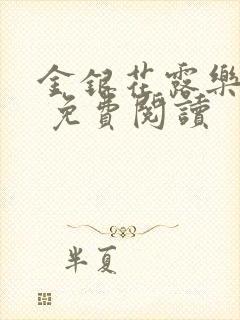 金銀花露樂
免費閱讀
半夏